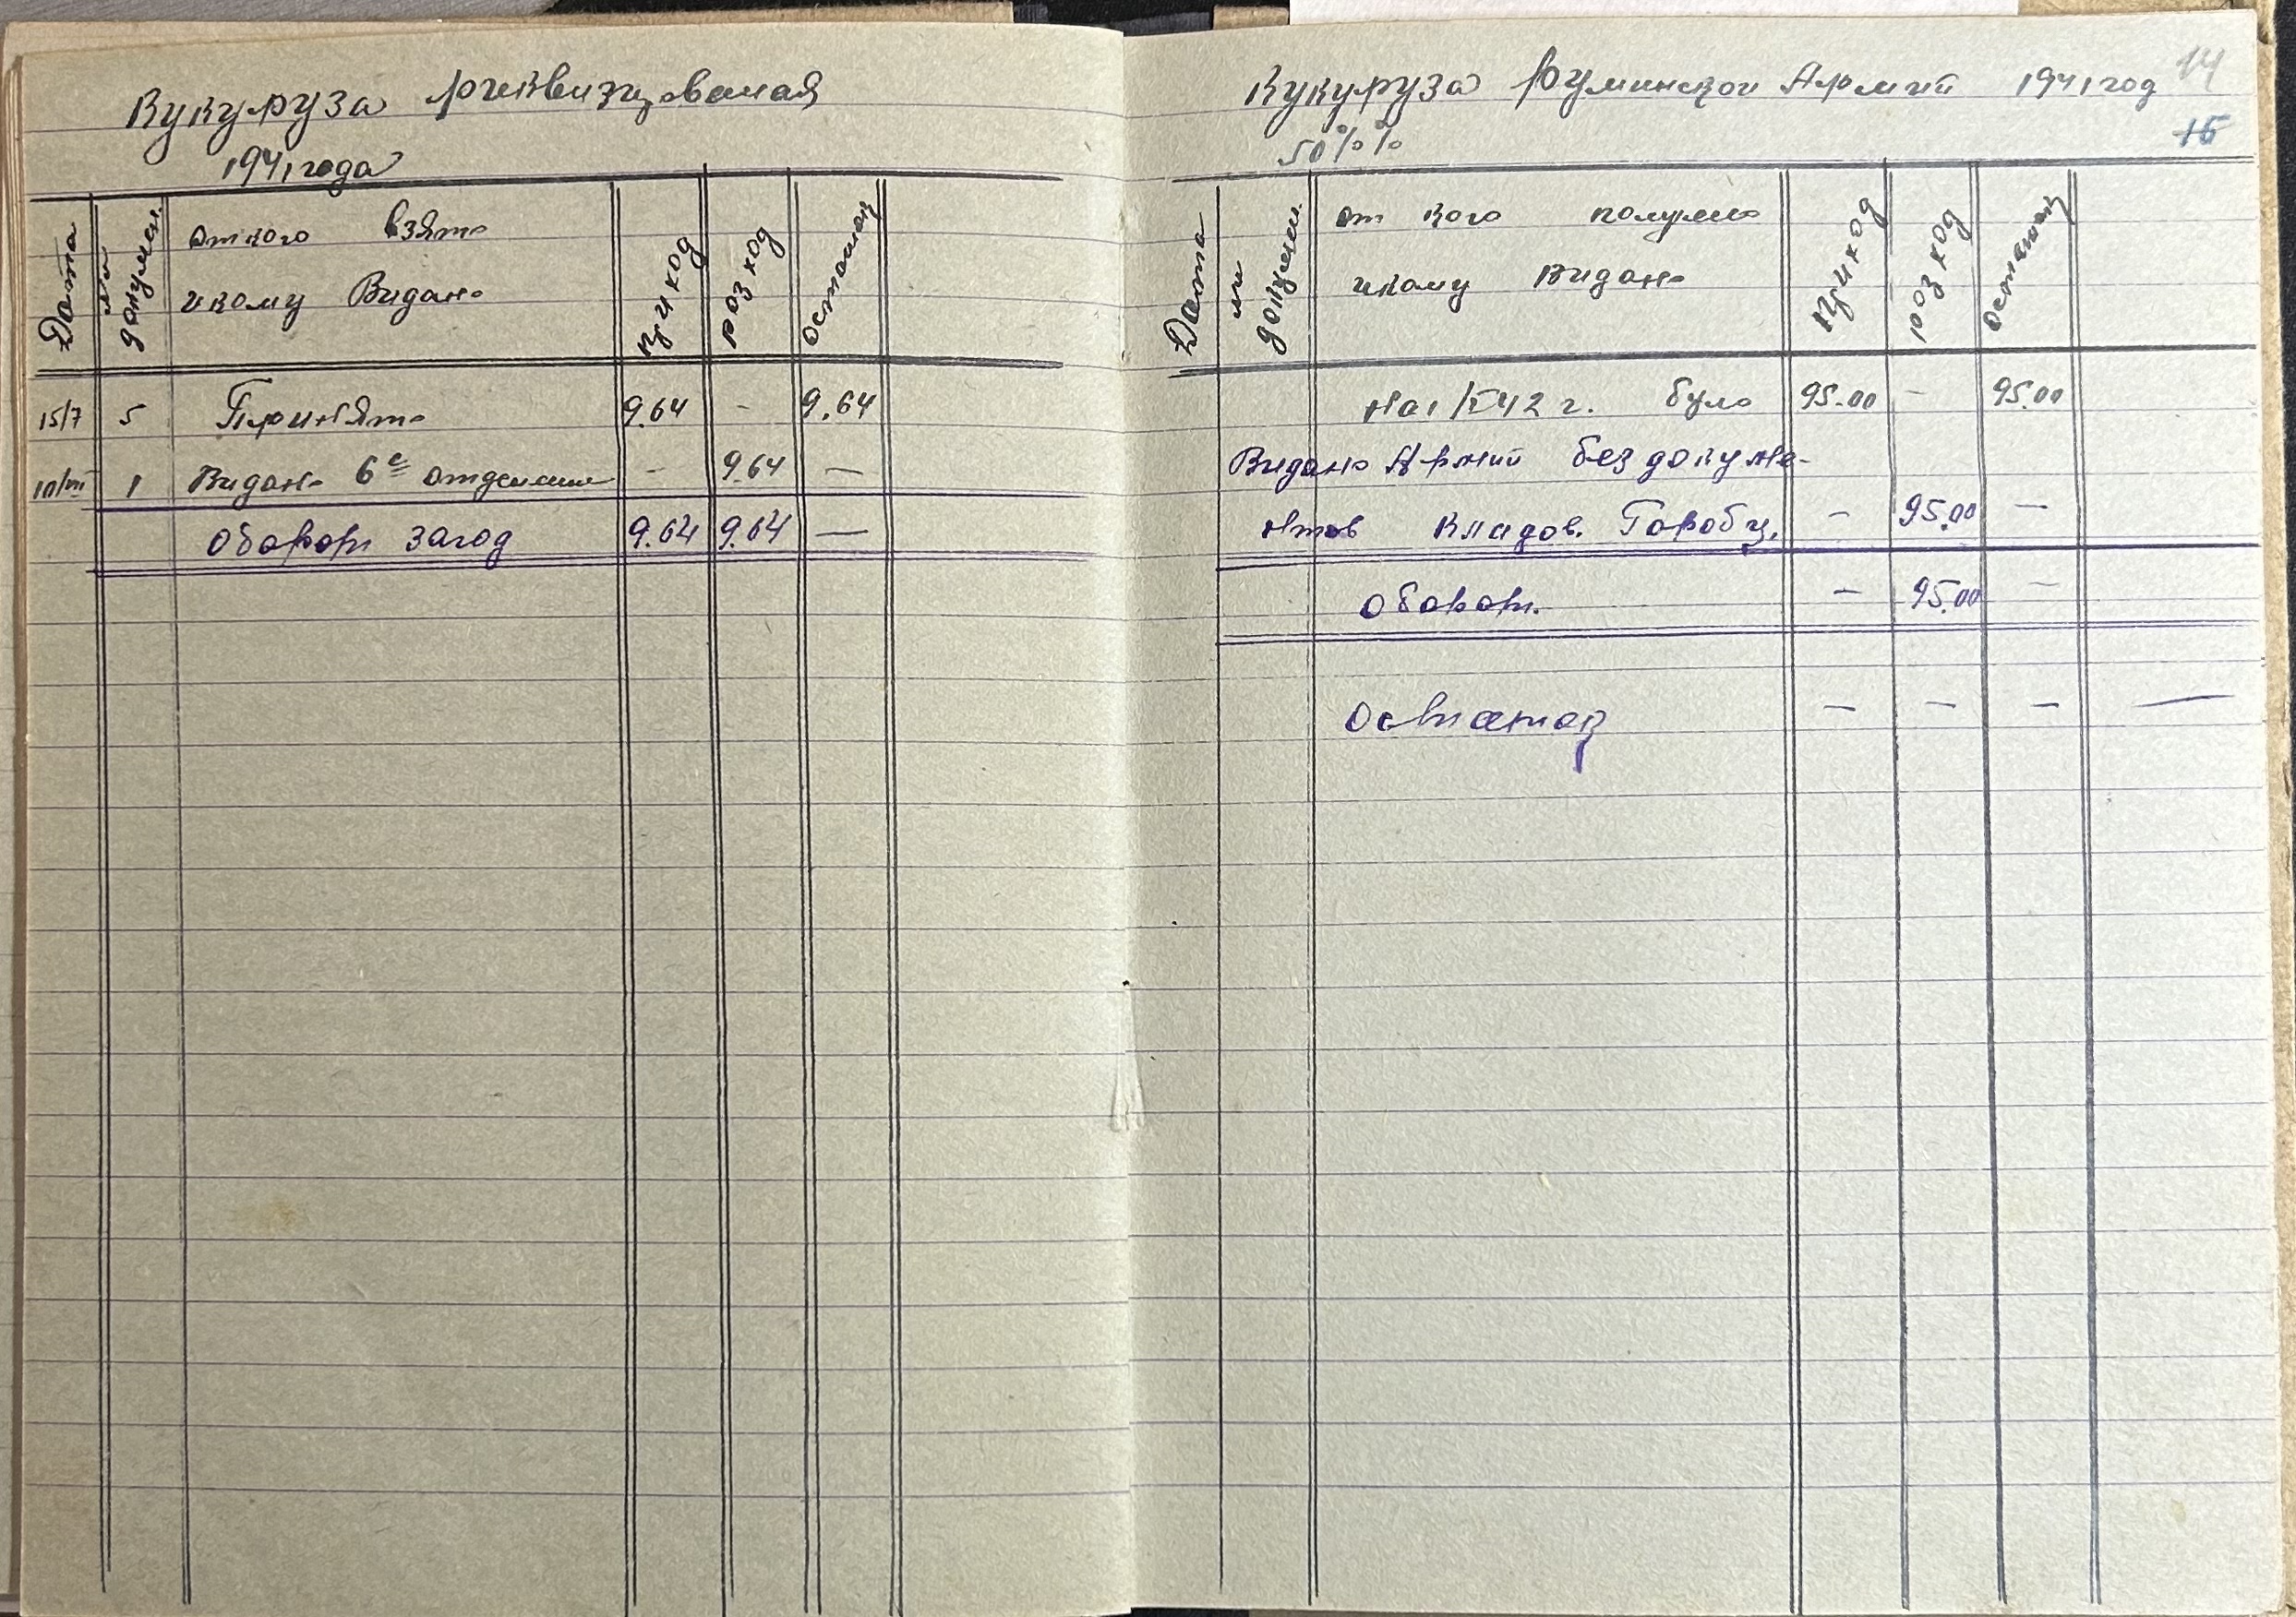 Кукуруза реквизированая
1941 года
Дата
№№ докумен.
от кого взято
и кому Видано
приход
розход
остаток
15/7 5 Принято 9.64 - 9.64
10/VII 1 Видано 6е отделение - 9.64 —
Оборот загод 9.64 9.64 —
Кукуруза Руминской Армий 1941 год 14
50%% 15
Дата
№№ докумен.
от кого получено
и кому видано
приход
розход
остаток
На 1/I 42 г. було 95.00 - 95.00
Видано Армий без докуме-
нтов Кладов. Горобц. - 95.00 —
Оборот. - 95.00 —
Остаток - - - —